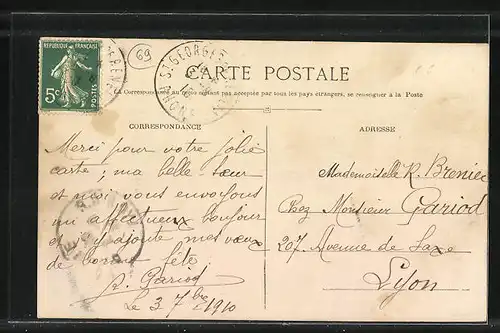 REPUBLIQUE FRANÇAISE
POSTES
5c
69
ST GEORGES
RHONE
CARTE POSTALE
La Correspondance au recto n'étant pas acceptée par tous les pays étrangers, se renseigner à la Poste
CORRESPONDANCE
Merci pour votre jolie
carte ; ma belle-sœur
et moi vous envoyons
un affectueux bonjour
et j'y ajoute mes vœux
de bonne fête.
R. Gariod
Le 3 7bre 1910
ADRESSE
Mademoiselle R. Brenier
Chez Monsieur Gariod
207 Avenue de Saxe
Lyon